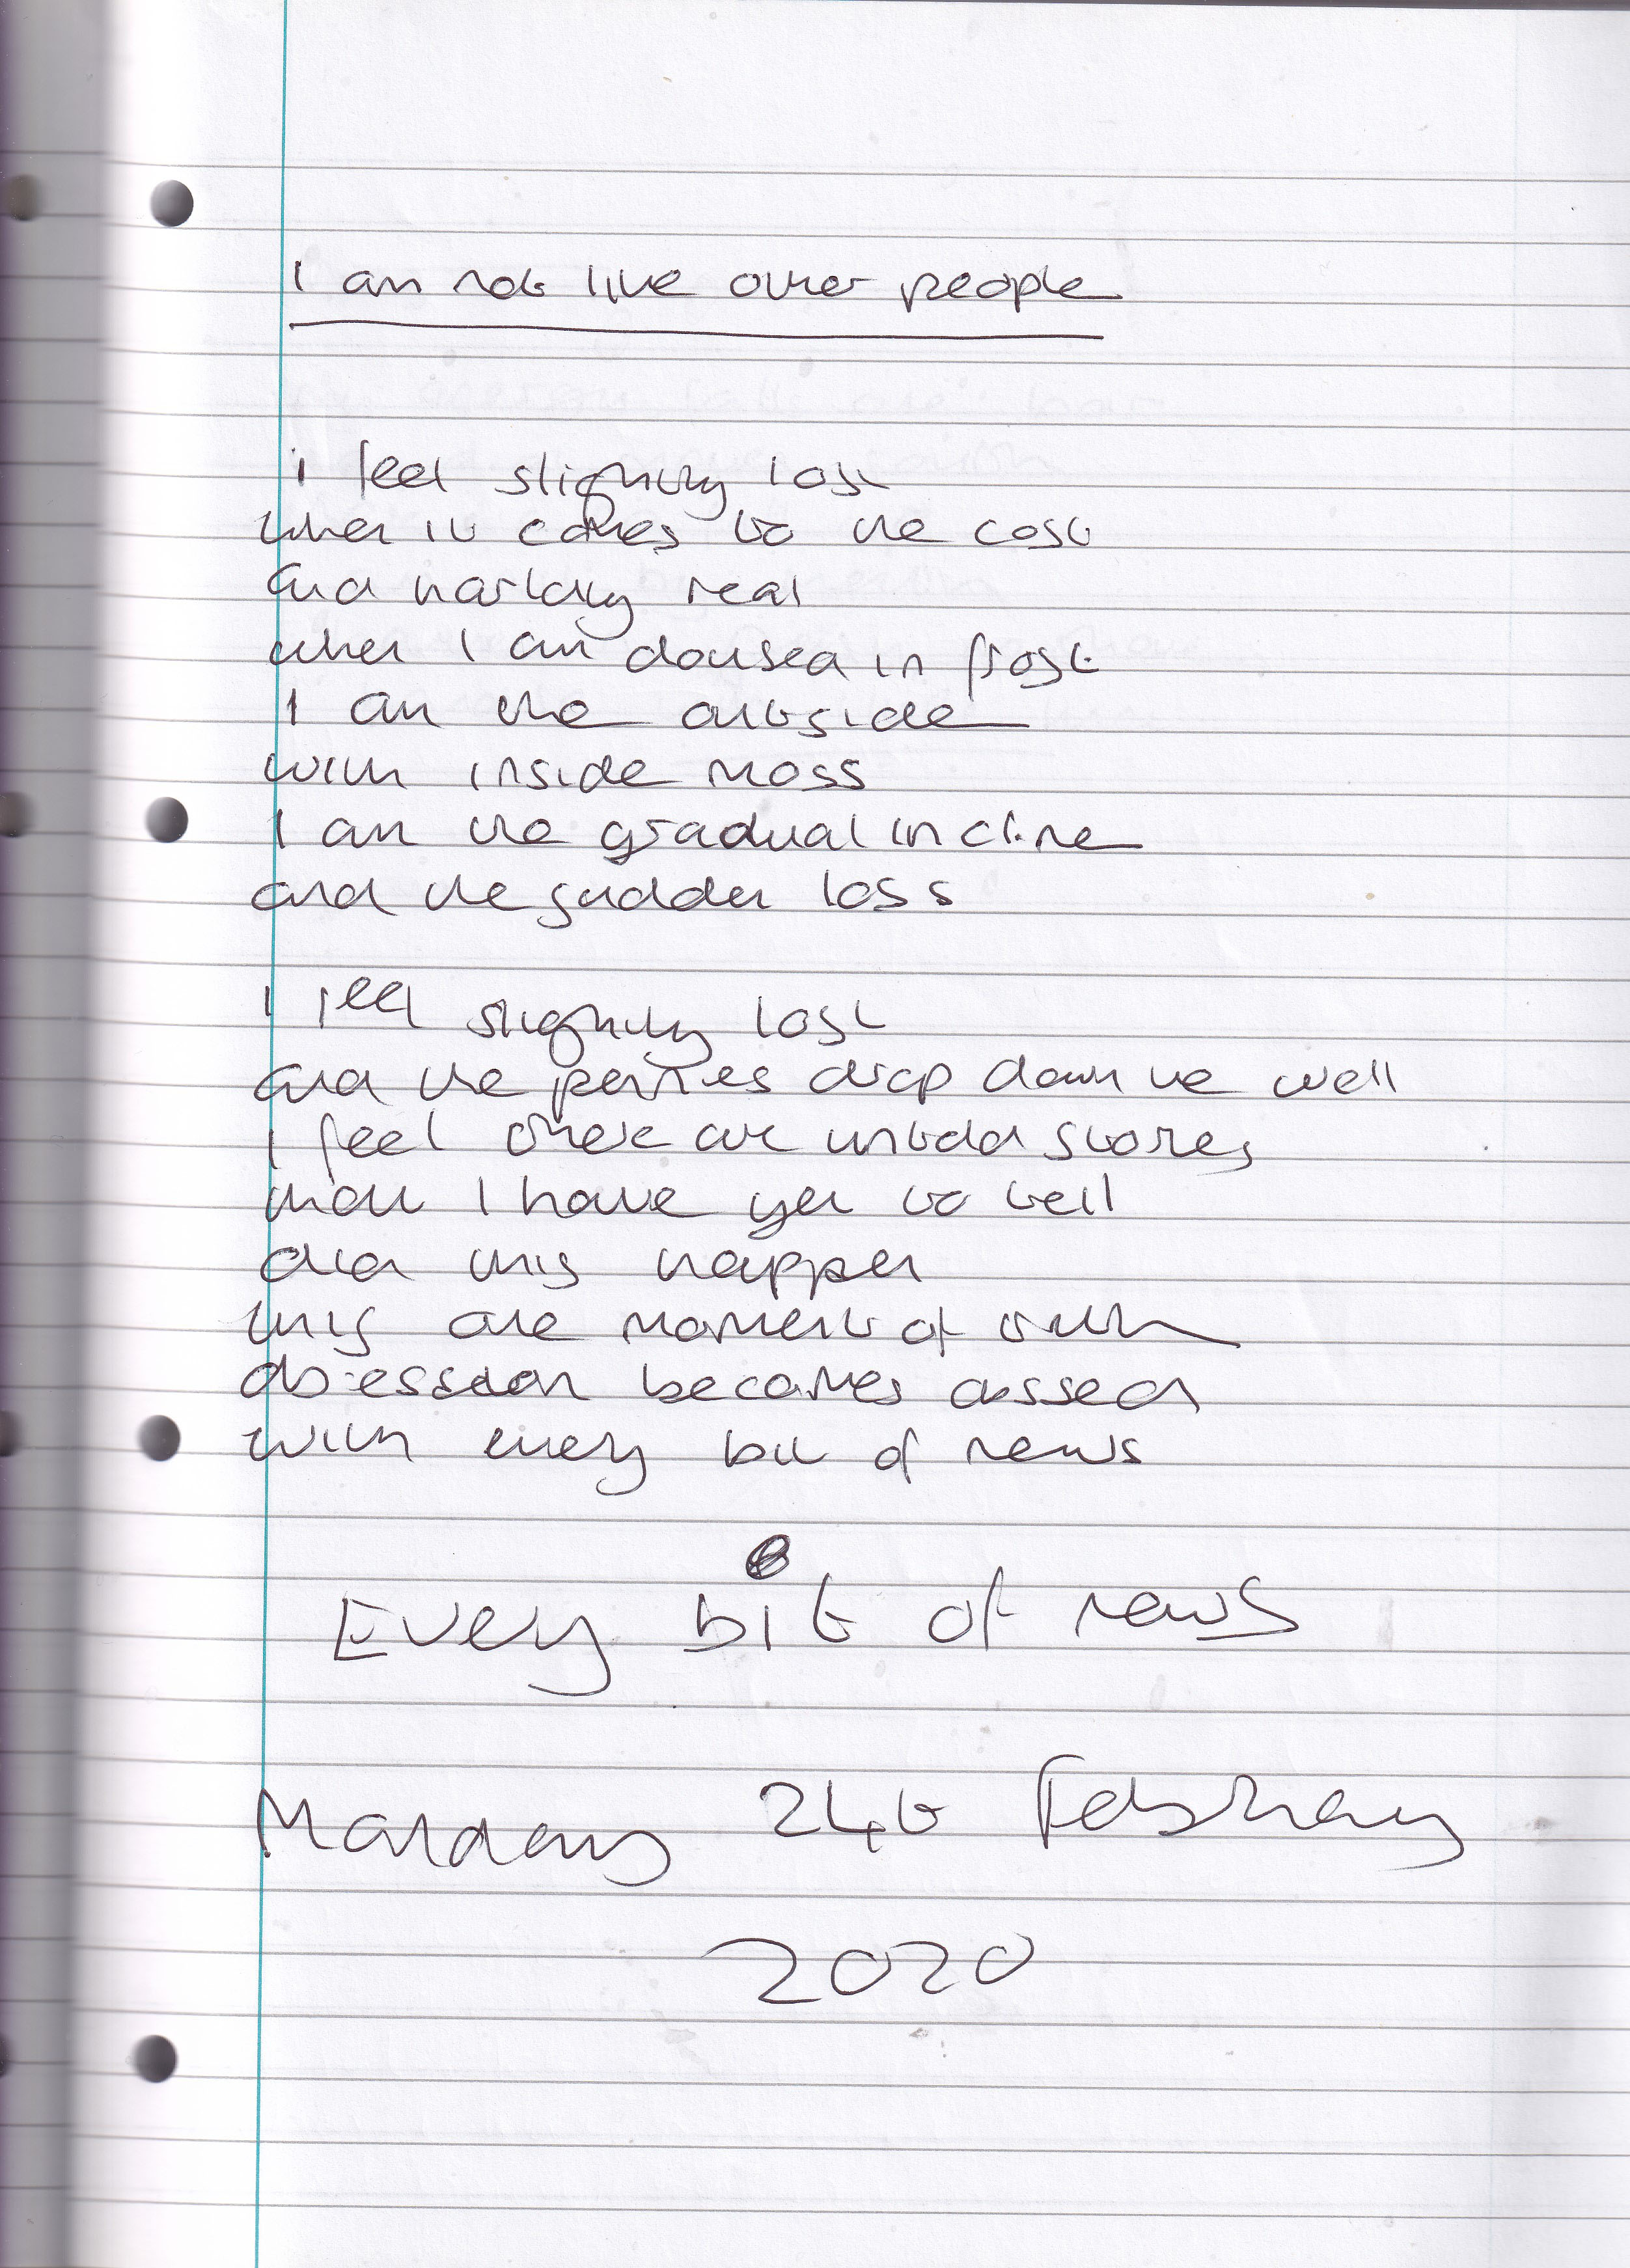 I am not like other people
I feel slightly lost
when it comes to the cost
and hardly real
when I am doused in frost
I am the outside
with inside moss
I am the gradual incline
and the sudden loss
I feel slightly lost
and the pennies drop down the well
I feel there are untold stories
that I have yet to tell
did this happen
this one moment of truth
obsession becomes
with every bit of news
Every bit of news
Monday 24th February
2020